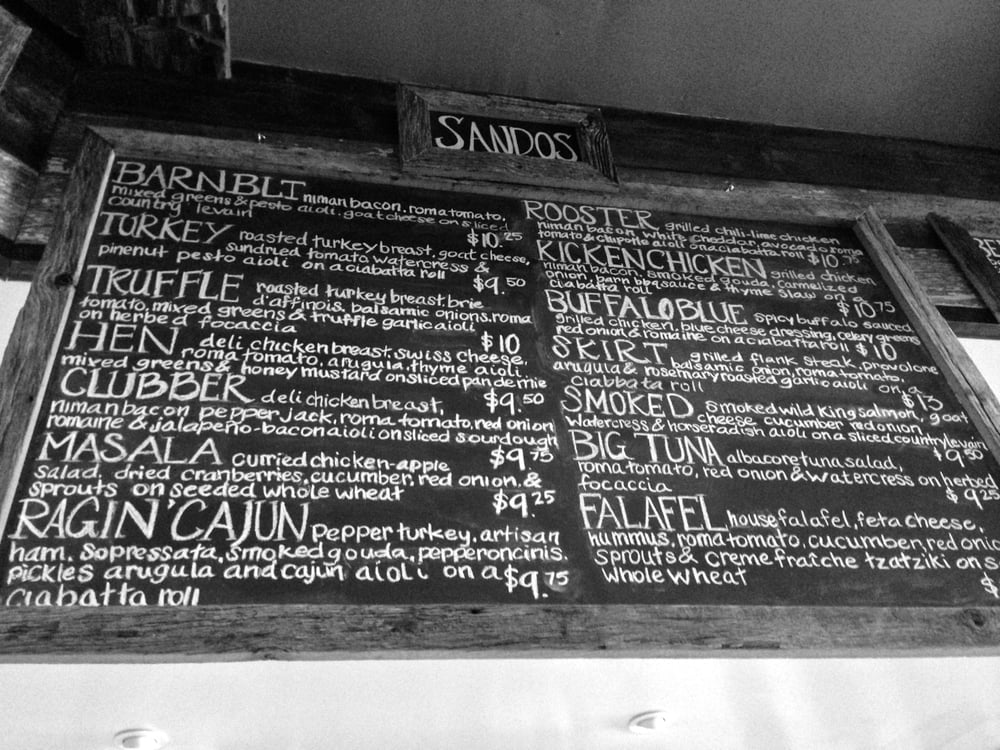 SANDOS
BARN.BLT niman bacon, roma tomato,
mixed greens & pesto aioli. goat cheese on sliced
country levain $10.25
TURKEY roasted turkey breast, goat cheese,
sundried tomato watercress &
pinenut pesto aioli on a ciabatta roll $9.50
TRUFFLE roasted turkey breast. brie
d'affinois, balsamic onions. roma
tomato, mixed greens & truffle garlic aioli
on herbed focaccia $10
HEN deli chicken breast. swiss cheese.
roma tomato, arugula, thyme aioli.
mixed greens & honey mustard on sliced pan de mie
CLUBBER deli chicken breast, $9.50
niman bacon pepper jack, roma tomato, red onion
romaine & jalapeño-bacon aioli on sliced sourdough
MASALA curried chicken-apple $9.75
salad, dried cranberries, cucumber, red onion, &
sprouts on seeded whole wheat $9.25
RAGIN' CAJUN pepper turkey, artisan
ham. sopressata, smoked gouda, pepperoncinis.
pickles arugula and cajun aioli on a $9.75
ciabatta roll
ROOSTER grilled chili-lime chicken
niman bacon, white cheddar, avocado, roma
tomato & chipotle aioli on a ciabatta roll $10.75
KICKEN CHICKEN grilled chicken
niman bacon, smoked gouda, carmelized
onion, barn bbq sauce & thyme slaw on a
ciabatta roll $10.75
BUFFALO BLUE spicy buffalo sauced
grilled chicken, blue cheese dressing, celery greens
red onion & romaine on a ciabatta roll $10
SKIRT grilled flank steak, provolone
balsamic onion, roma tomato.
arugula & rosemary roasted garlic aioli on a
ciabbata roll $13
SMOKED smoked wild king salmon, goat
cheese cucumber red onion,
watercress & horseradish aioli on a sliced country levain
$9.50
BIG TUNA albacore tuna salad,
roma tomato, red onion & watercress on herbed
focaccia $9.25
FALAFEL house falafel, feta cheese,
hummus, roma tomato, cucumber, red onio
sprouts & creme fraîche tzatziki on s
whole wheat $